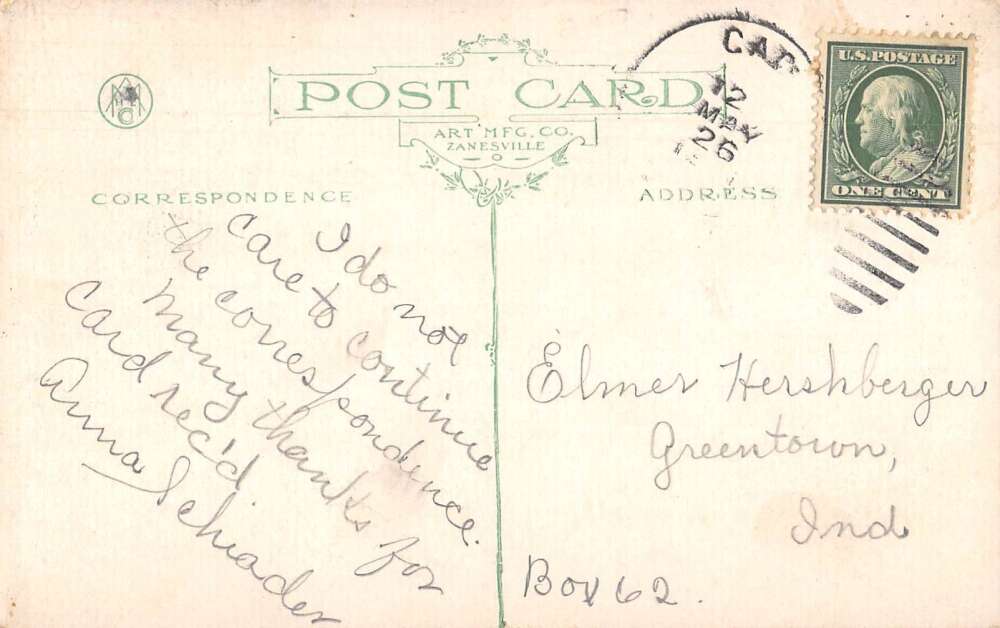 POST CARD
ART MFG. CO.
ZANESVILLE
CORRESPONDENCE
ADDRESS
12
MAY
26
U.S. POSTAGE
ONE CENT
I do not
care to continue
the correspondence.
Many thanks for
card rec'd.
Anna Schrader
Elmer Hershberger
Greentown,
Ind
Box 62.